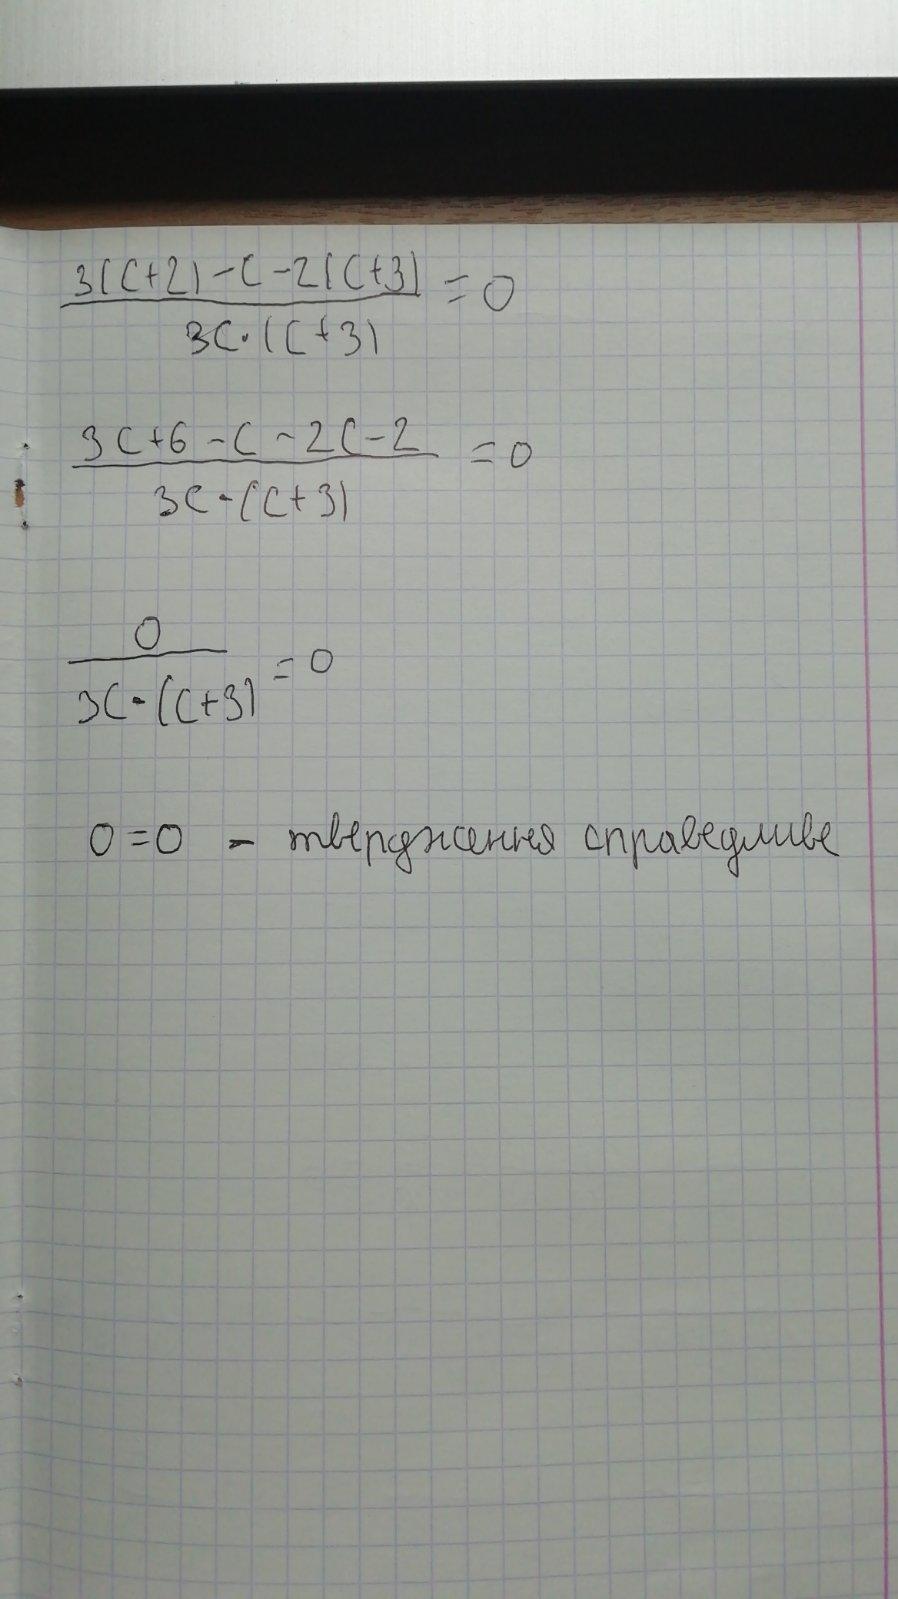 3(c+2)-c-2(c+3)
────────────── = 0
3c·(c+3)
3c+6-c-2c-2
────────────── = 0
3c·(c+3)
0
────────────── = 0
3c·(c+3)
0=0 - твердження справедливе